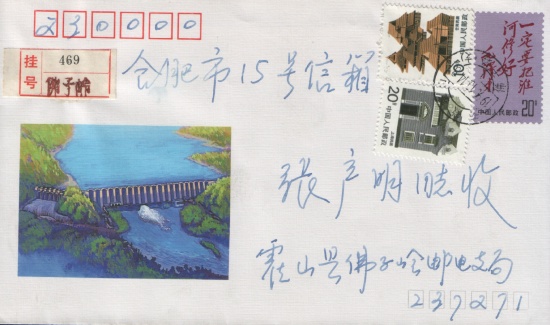 230000
挂号
469
佛子岭
合肥市15号信箱
中国人民邮政
20分
中国人民邮政
一定要把淮
河修好
毛泽东
20分
中国人民邮政
收
霍山县佛子岭邮电支局
237271